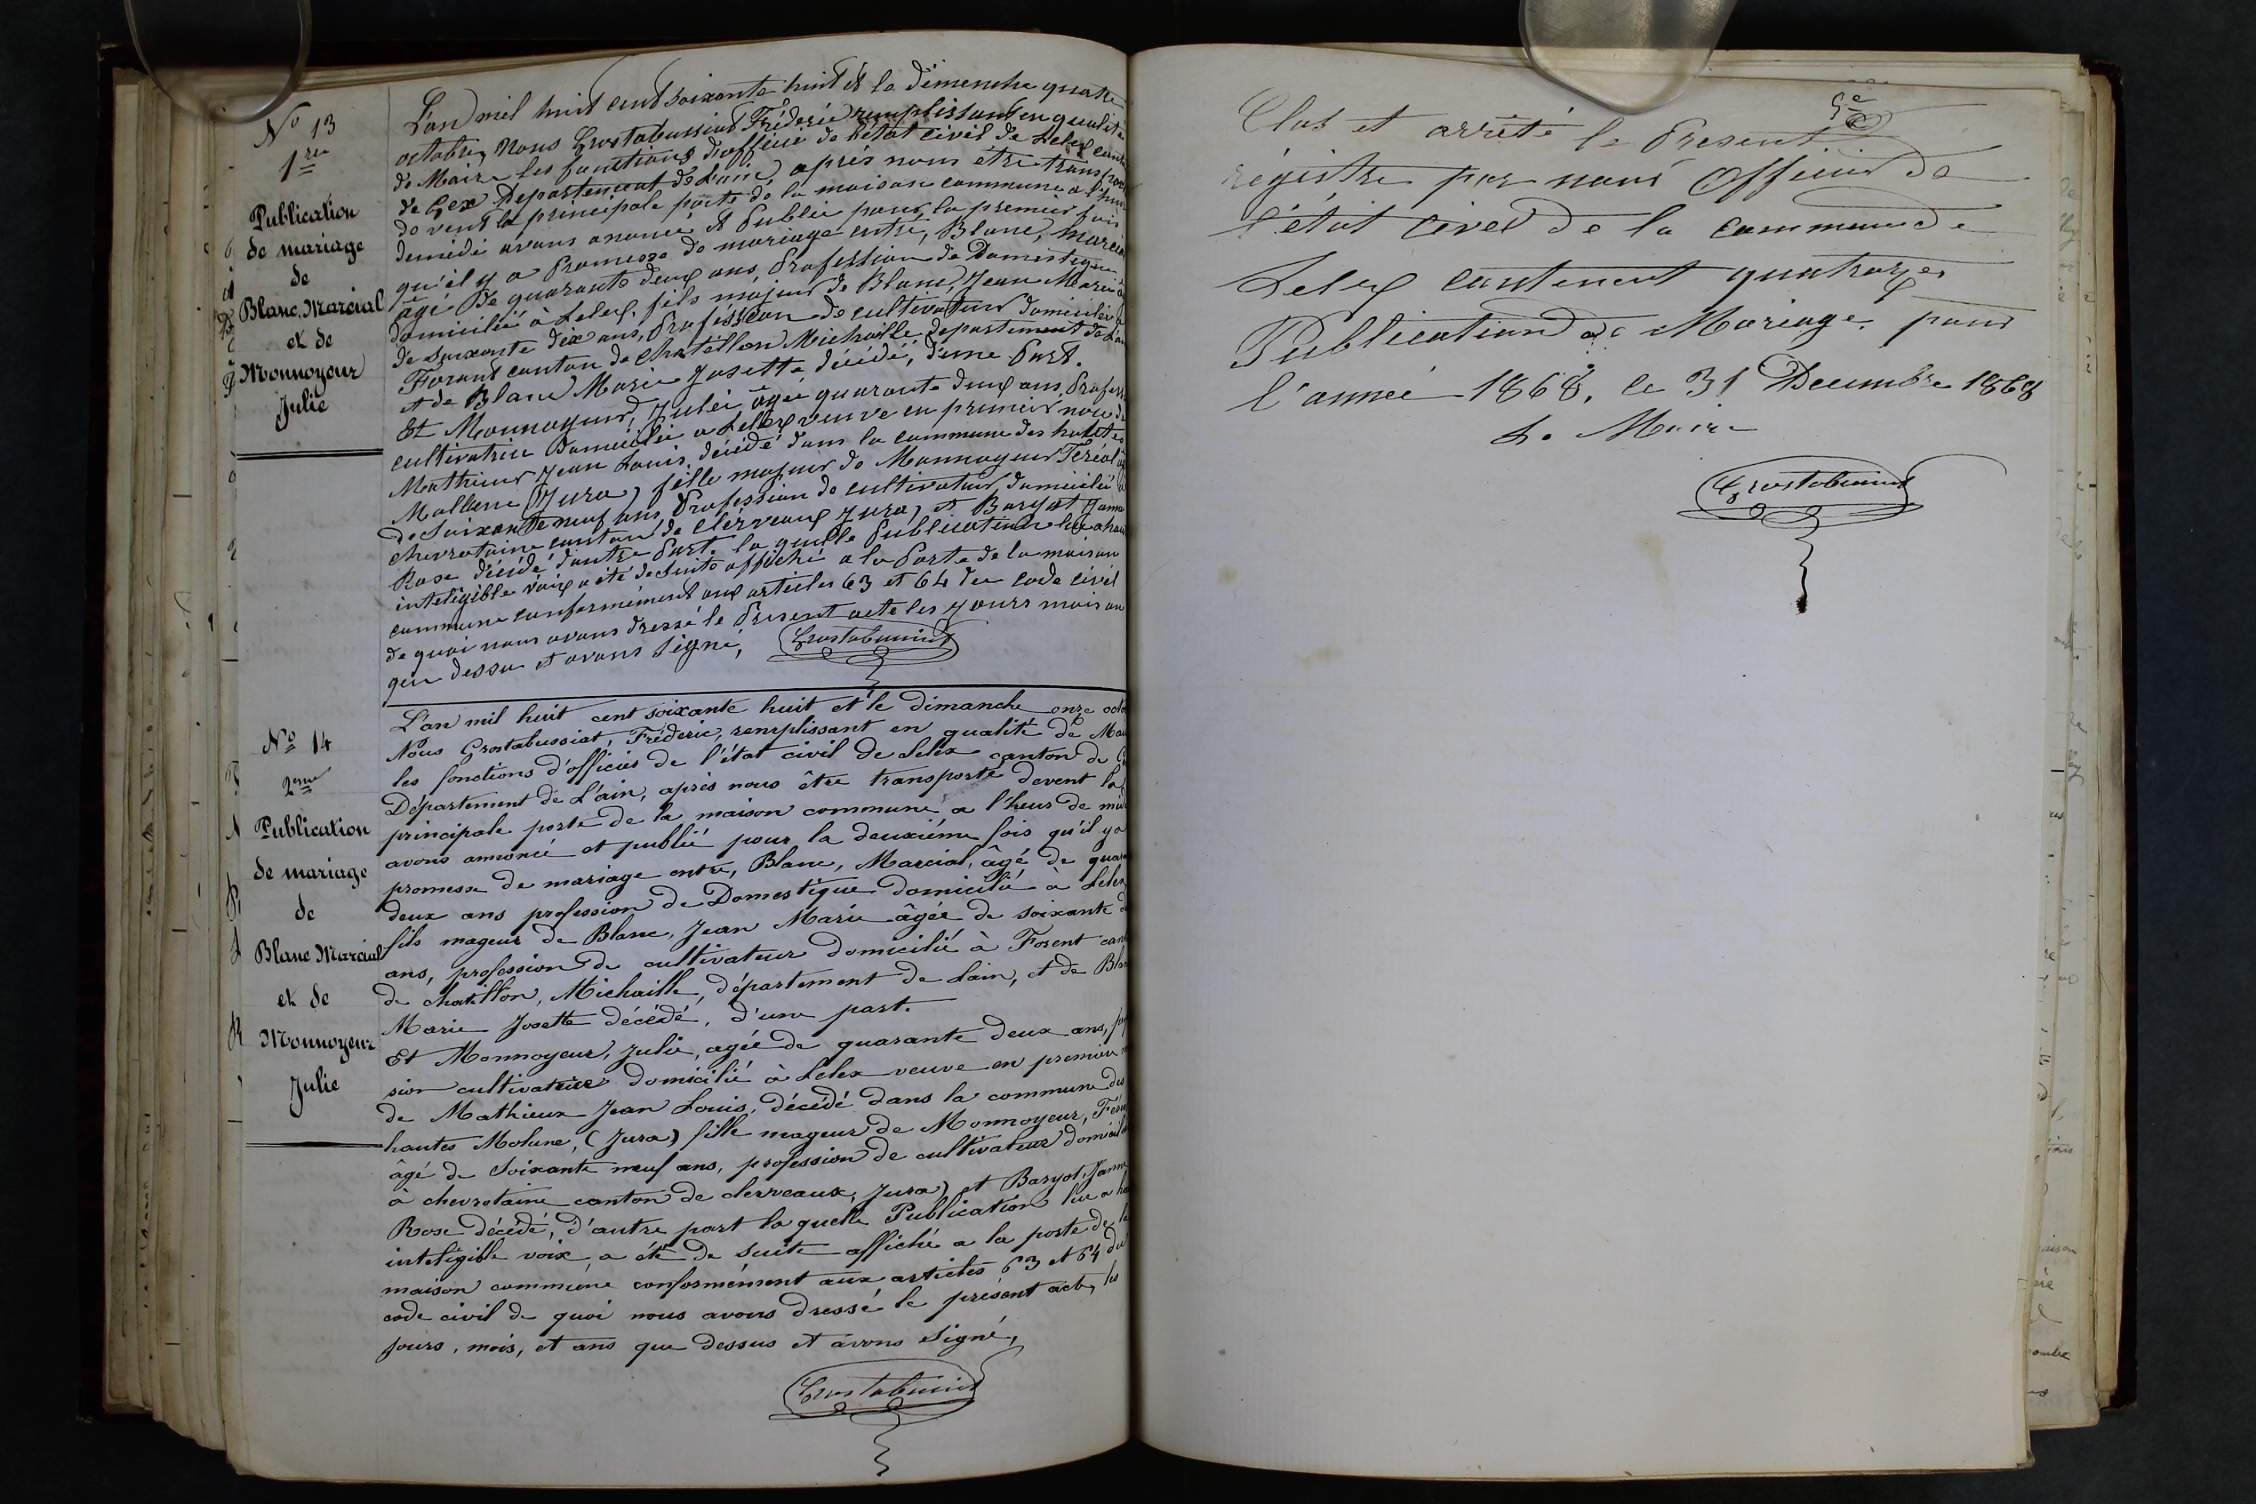 No 13
1re
Publication
de mariage
de
Blanc, Marcial
et de
Monnoyeur
Julie
L'an mil huit cent soixante huit et le dimenche quatre
octobre, Nous Grostabussiat Fréderic remplissant en qualité
de Maire les fonctions d'officié de l'état civil de Lelex canto
de Gex Departement de Lain, après nous être transpor
de vent la principale porte de la maison commune a l'heur
demidi avons anoncé et Publié pour la premier fois
qu'il y a Promesse de mariage entre, Blanc, Marcia
âgé De quarante deux ans, Profession de Domestique
domicilié à Lelex, fils majeur de Blanc, Jean Marie
de Soixante dix ans, Profession de cultivateur domicilié
Forent canton de Chatillon Michaille, departement de L'ain
et de Blanc Marie Josette décédé, d'une Part.
Et Monnoyeur, Julei âgée quarante deux ans, Profess
cultivatrice Domicilié a Lelex veuve en premier noce de
Mathieux Jean Louis, décédé dans la commune des hautes
Mollune (Jura) fille majeur de Monnoyeur Feréol
de Soixante neuf ans, Profession de cultivateur, domicilié
chevrotaine canton de Clerveaux Jura) et Bargot Janne
Rose décédé d'autre Part. la quelle Publication lue a hau
inteligible voix a été de suite affiché a la Porte de la maison
commune conformément aux articles 63 et 64 du code civil
de quoi nous avons dressé le Present acte les yours mois an
que dessu et avons signé,
Grostabussiat
No 14
2eme
Publication
de mariage
de
Blanc Marcial
et de
Monnoyeur
Julie
L'an mil huit cent soixante huit et le dimanche onze octo
Nous Grostabussiat, Fréderic, remplissant en qualité de Mai
les fonctions d'officier de l'état civil de Lelex canton de G
Département de L'ain, après nous être transporté devent la
principale porte de la maison commune a l'heur de mid
avons annoncé et publié pour la deuxiéme fois qu'il y a
promesse de mariage entre, Blanc, Marcial, âgé de quar
deux ans profession de Domestique domicilié à Lelex
fils mageur de Blanc, Jean Marie âgée de soixante d
ans, profession de cultivateur domicilié à Forent cant
de chatillon, Michaille, département de Lain, et de Blan
Marie Josette décédé, d'une part.
Et Monnoyeur, Julie, agée de quarante deux ans, prof
sion cultivatrice domicilié à Lelex veuve en premiere n
de Mathieux Jean Louis, décédé dans la commune des
hautes Molune, (Jura) fille mageur de Monnoyeur, Feré
âgé de Soixante neuf ans, profession de cultivateur domicil
à chevrotaine canton de clerveaux, Jura) et Bargot, Janne
Rose décédé, d'autre part la quelle Publication lue a ha
inteligible voix, a été de suite affiché a la porte de la
maison commune conformément aux articles 63 et 64 du
code civil de quoi nous avons dressé le présent acte, les
jours, mois, et ans que dessus et avons signé,
Grostabussiat
Clos et arrêté le Present
régistre par nous Officier de
l'état civel de la commune de
Lelex contenent quatorze
Publication de Mariage. pour
l'année 1868, le 31 Decembre 1868
Le Maire
Grostabussiat